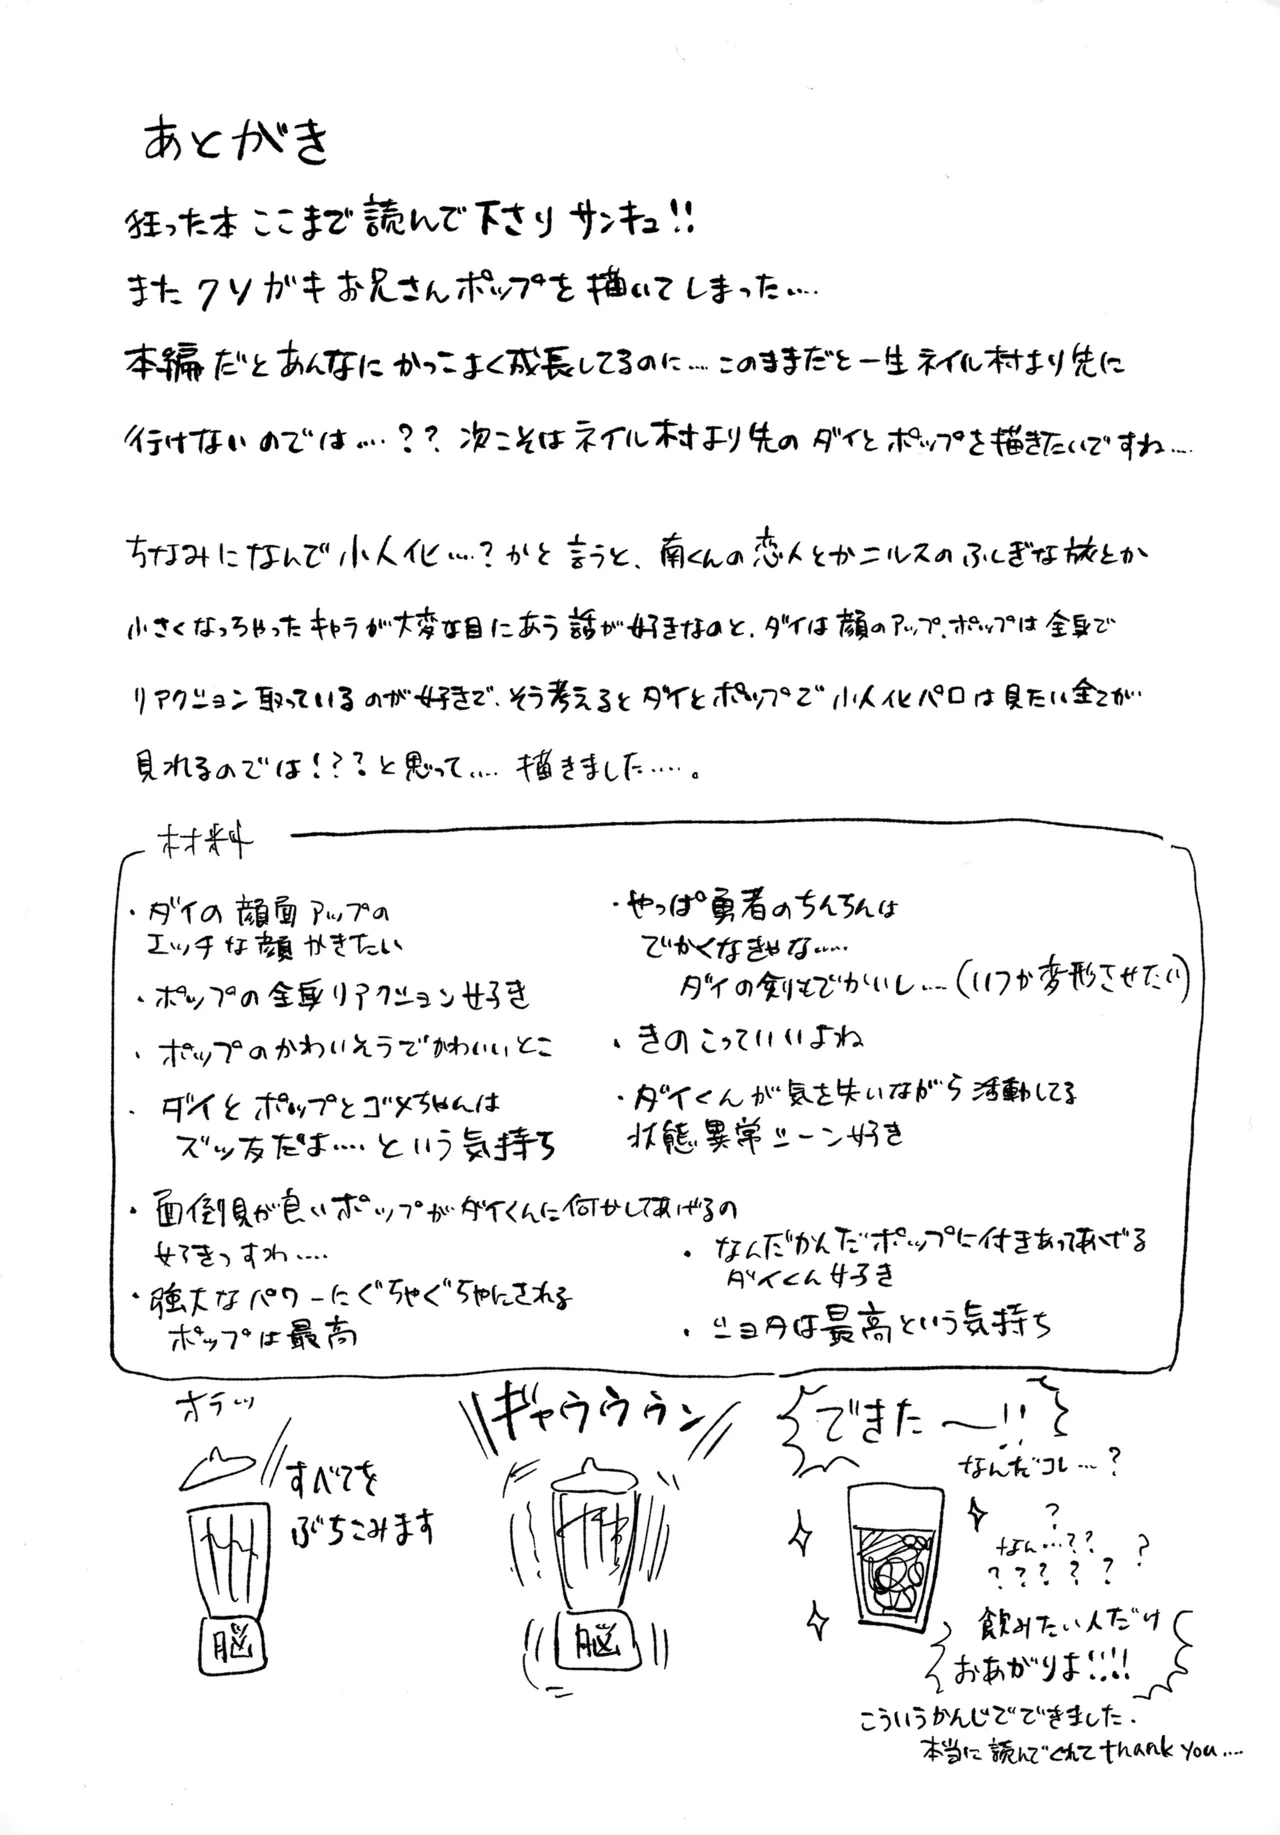 あとがき
狂った本ここまで読んで下さりサンキュ!!
またクソガキお兄さんポップを描いてしまった….
本編だとあんなにかっこよく成長してるのに….このままだと一生ネイル村より先に
行けないのでは….??次こそはネイル村より先のダイとポップを描きたいですね….
ちなみになんで小人化….?かと言うと、南くんの恋人とかニルスのふしぎな旅とか
小さくなっちゃったキャラが大変な目にあう話が好きなのと、ダイは顔のアップ、ポップは全身で
リアクション取っているのが好きで、そう考えるとダイとポップで小人化パロは見たい全てが
見れるのでは!??と思って….描きました…..。
材料
・ポップの全身リアクション好き
・ポップのかわいそうでかわいいとこ
・ダイとポップとゴメちゃんは
ズッ友だよ….という気持ち
・面倒見が良いポップがダイくんに何かしてあげるの
好きっすわ….
・きのこっていいよね
・ダイくんが気を失いながら活動してる
状態異常シーン好き
・なんだかんだポップに付きあってあげる
ダイくん好き
オラッ
すべてを
ぶちこみます
脳
ギャウウウン
脳
できた〜!!
なんだコレ…?
?
なん…??
?????
?
飲みたい人だけ
おあがりよ!!!!
こういうかんじでできました.
本当に読んでくれてthank you….